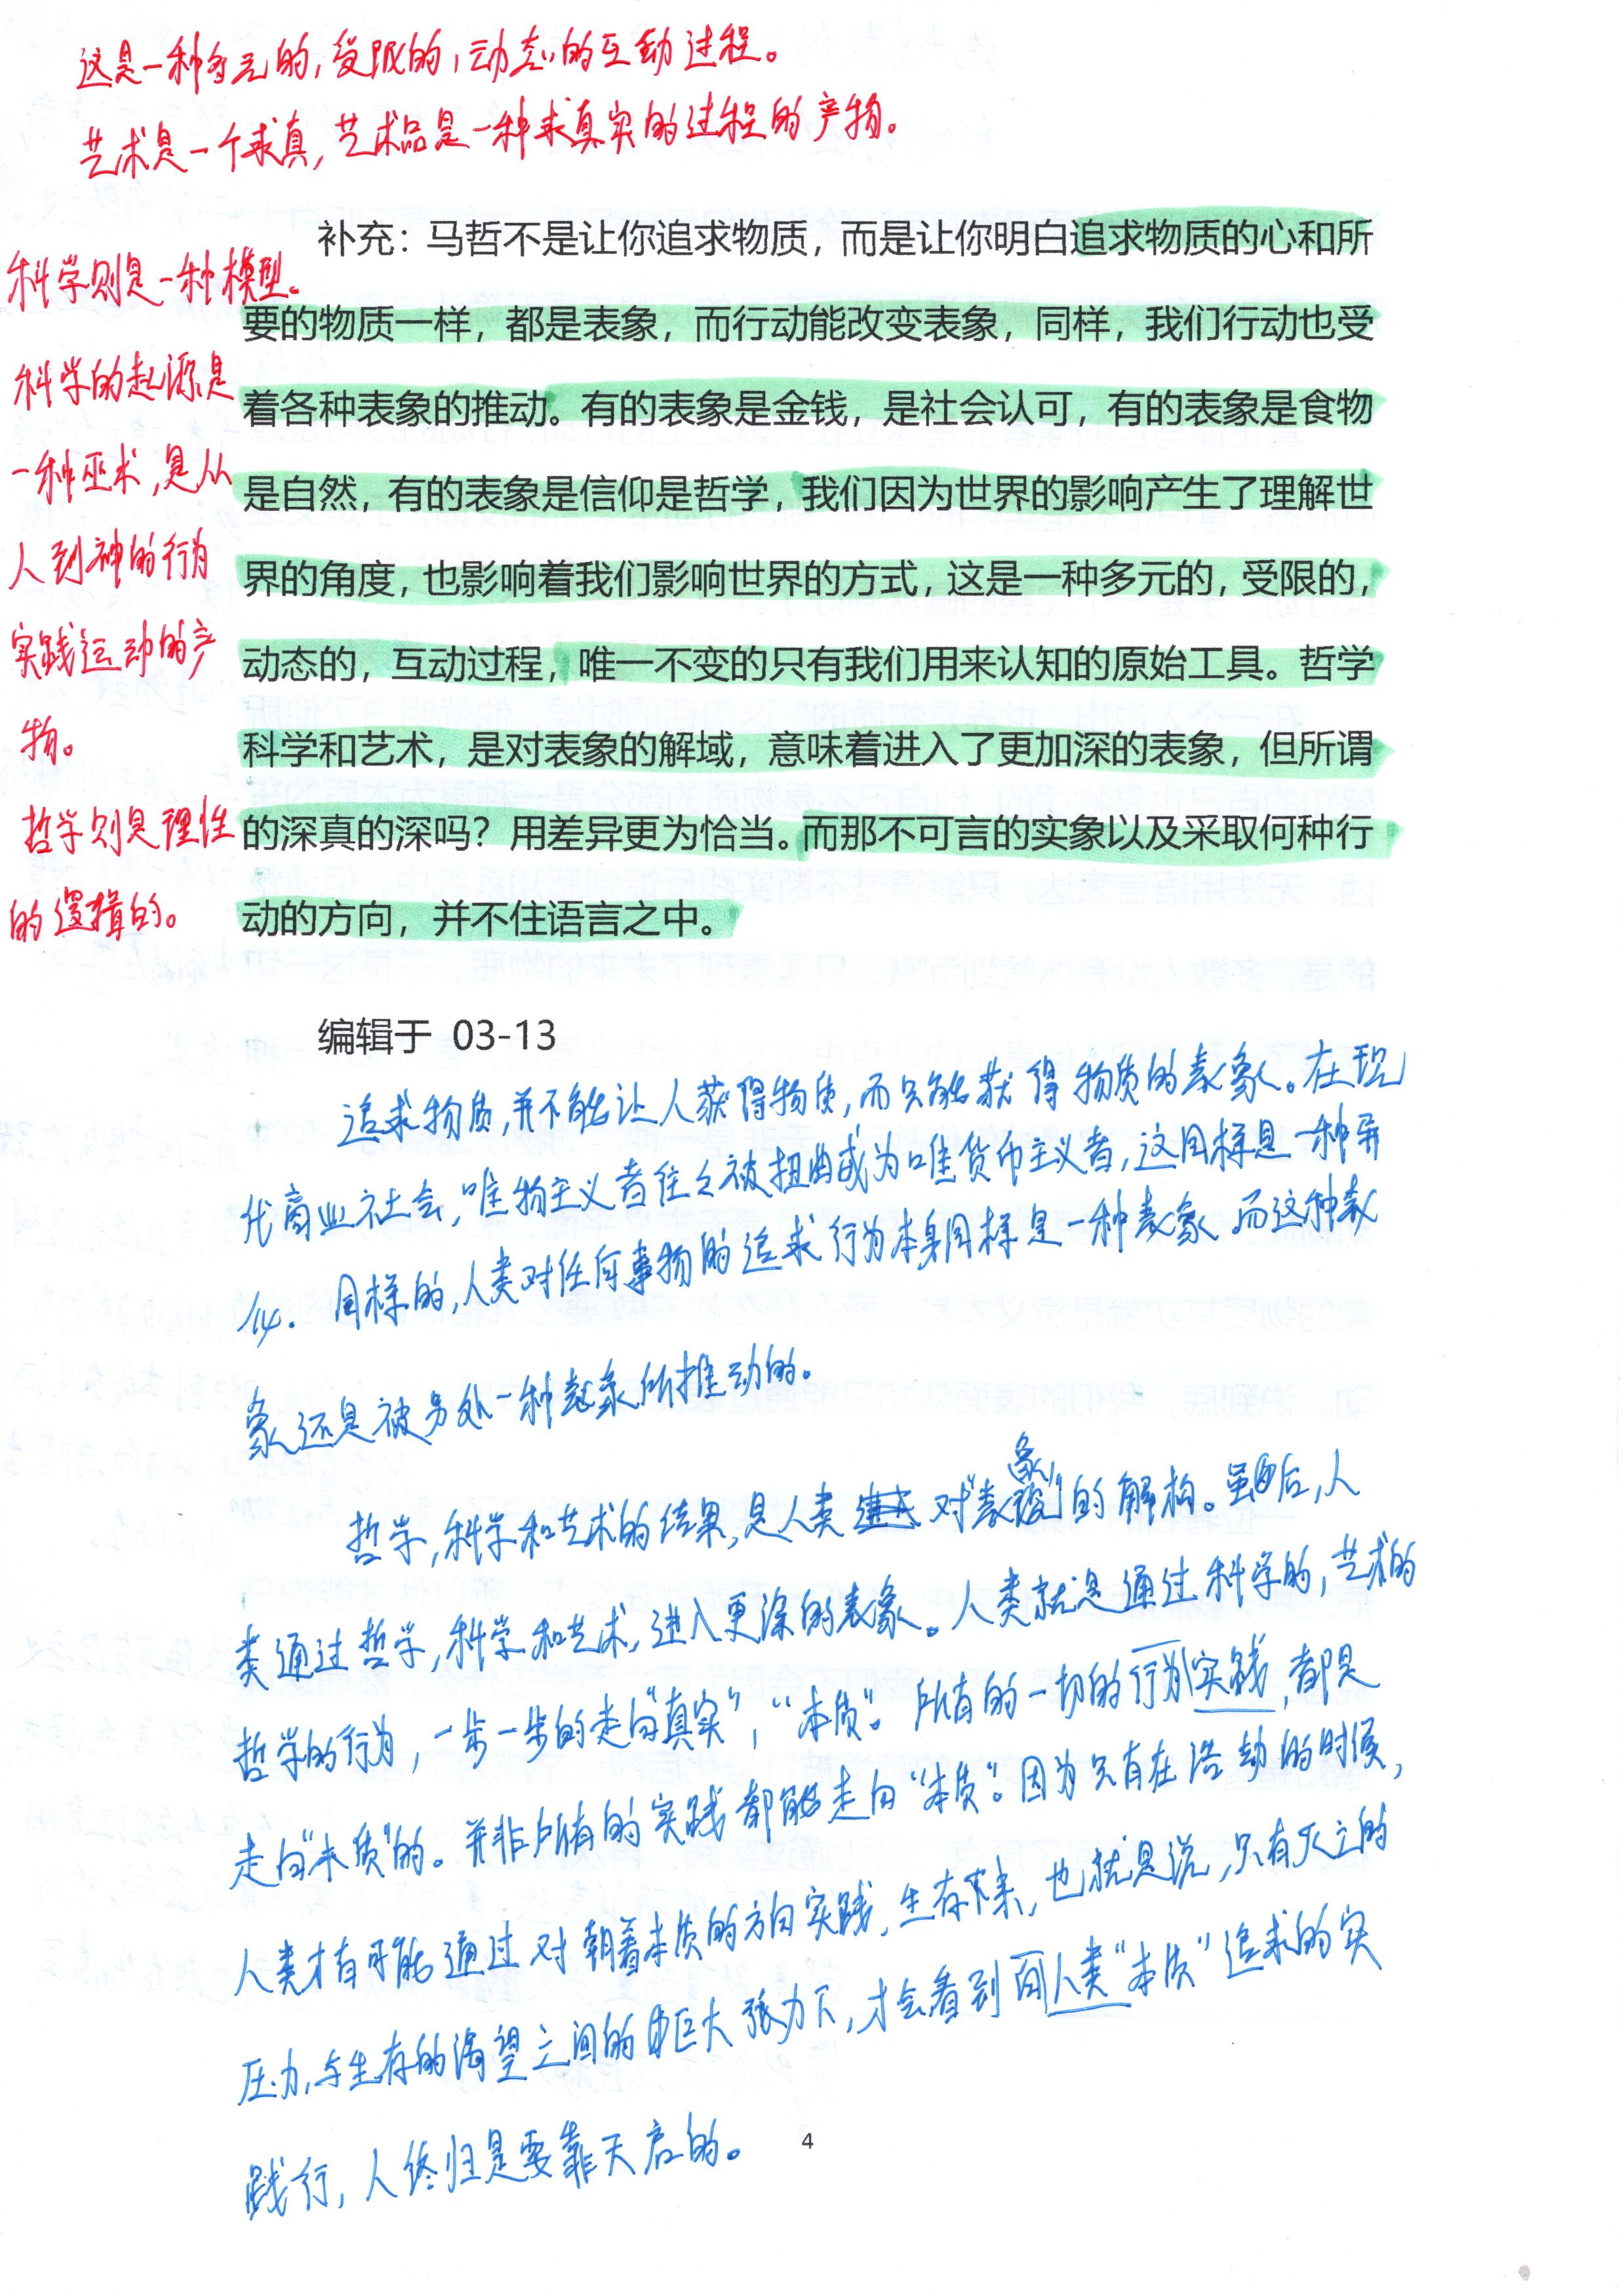 这是一种多元的，受限的，动态的互动过程。
艺术是一个求真，艺术品是一种求真实的过程的产物。
补充：马哲不是让你追求物质，而是让你明白追求物质的心和所
要的物质一样，都是表象，而行动能改变表象，同样，我们行动也受
着各种表象的推动。有的表象是金钱，是社会认可，有的表象是食物
是自然，有的表象是信仰是哲学，我们因为世界的影响产生了理解世
界的角度，也影响着我们影响世界的方式，这是一种多元的，受限的，
动态的，互动过程，唯一不变的只有我们用来认知的原始工具。哲学
科学和艺术，是对表象的解域，意味着进入了更加深的表象，但所谓
的深真的深吗？用差异更为恰当。而那不可言的实象以及采取何种行
动的方向，并不住语言之中。
科学则是一种模型。
科学的起源是
一种巫术，是从
人到神的行为
实践运动的产
物。
哲学则是理性
的逻辑的。
编辑于 03-13
追求物质，并不能让人获得物质，而只能获得物质的表象。在现
代商业社会，唯物主义者往往被扭曲成为唯货币主义者，这同样是一种异
化。同样的，人类对任何事物的追求行为本身同样是一种表象，而这种表
象还是被另处一种表象所推动的。
哲学，科学和艺术的结果，是人类对“表象”的解构。至此后，人
类通过哲学，科学和艺术，进入更深的表象。人类就是通过科学的，艺术的
哲学的行为，一步一步的走向“真实”，“本质”。所有的一切的行为实践，都是
走向“本质”的。并非所有的实践都能走向“本质”。因为只有在浩劫的时候，
人类才有可能通过对朝着本质的方向实践，生存下来，也就是说，只有灭亡的
压力，与生存的渴望之间的巨大张力下，才会看到人类“本质”追求的实
践行，人终归是要靠天启的。
4